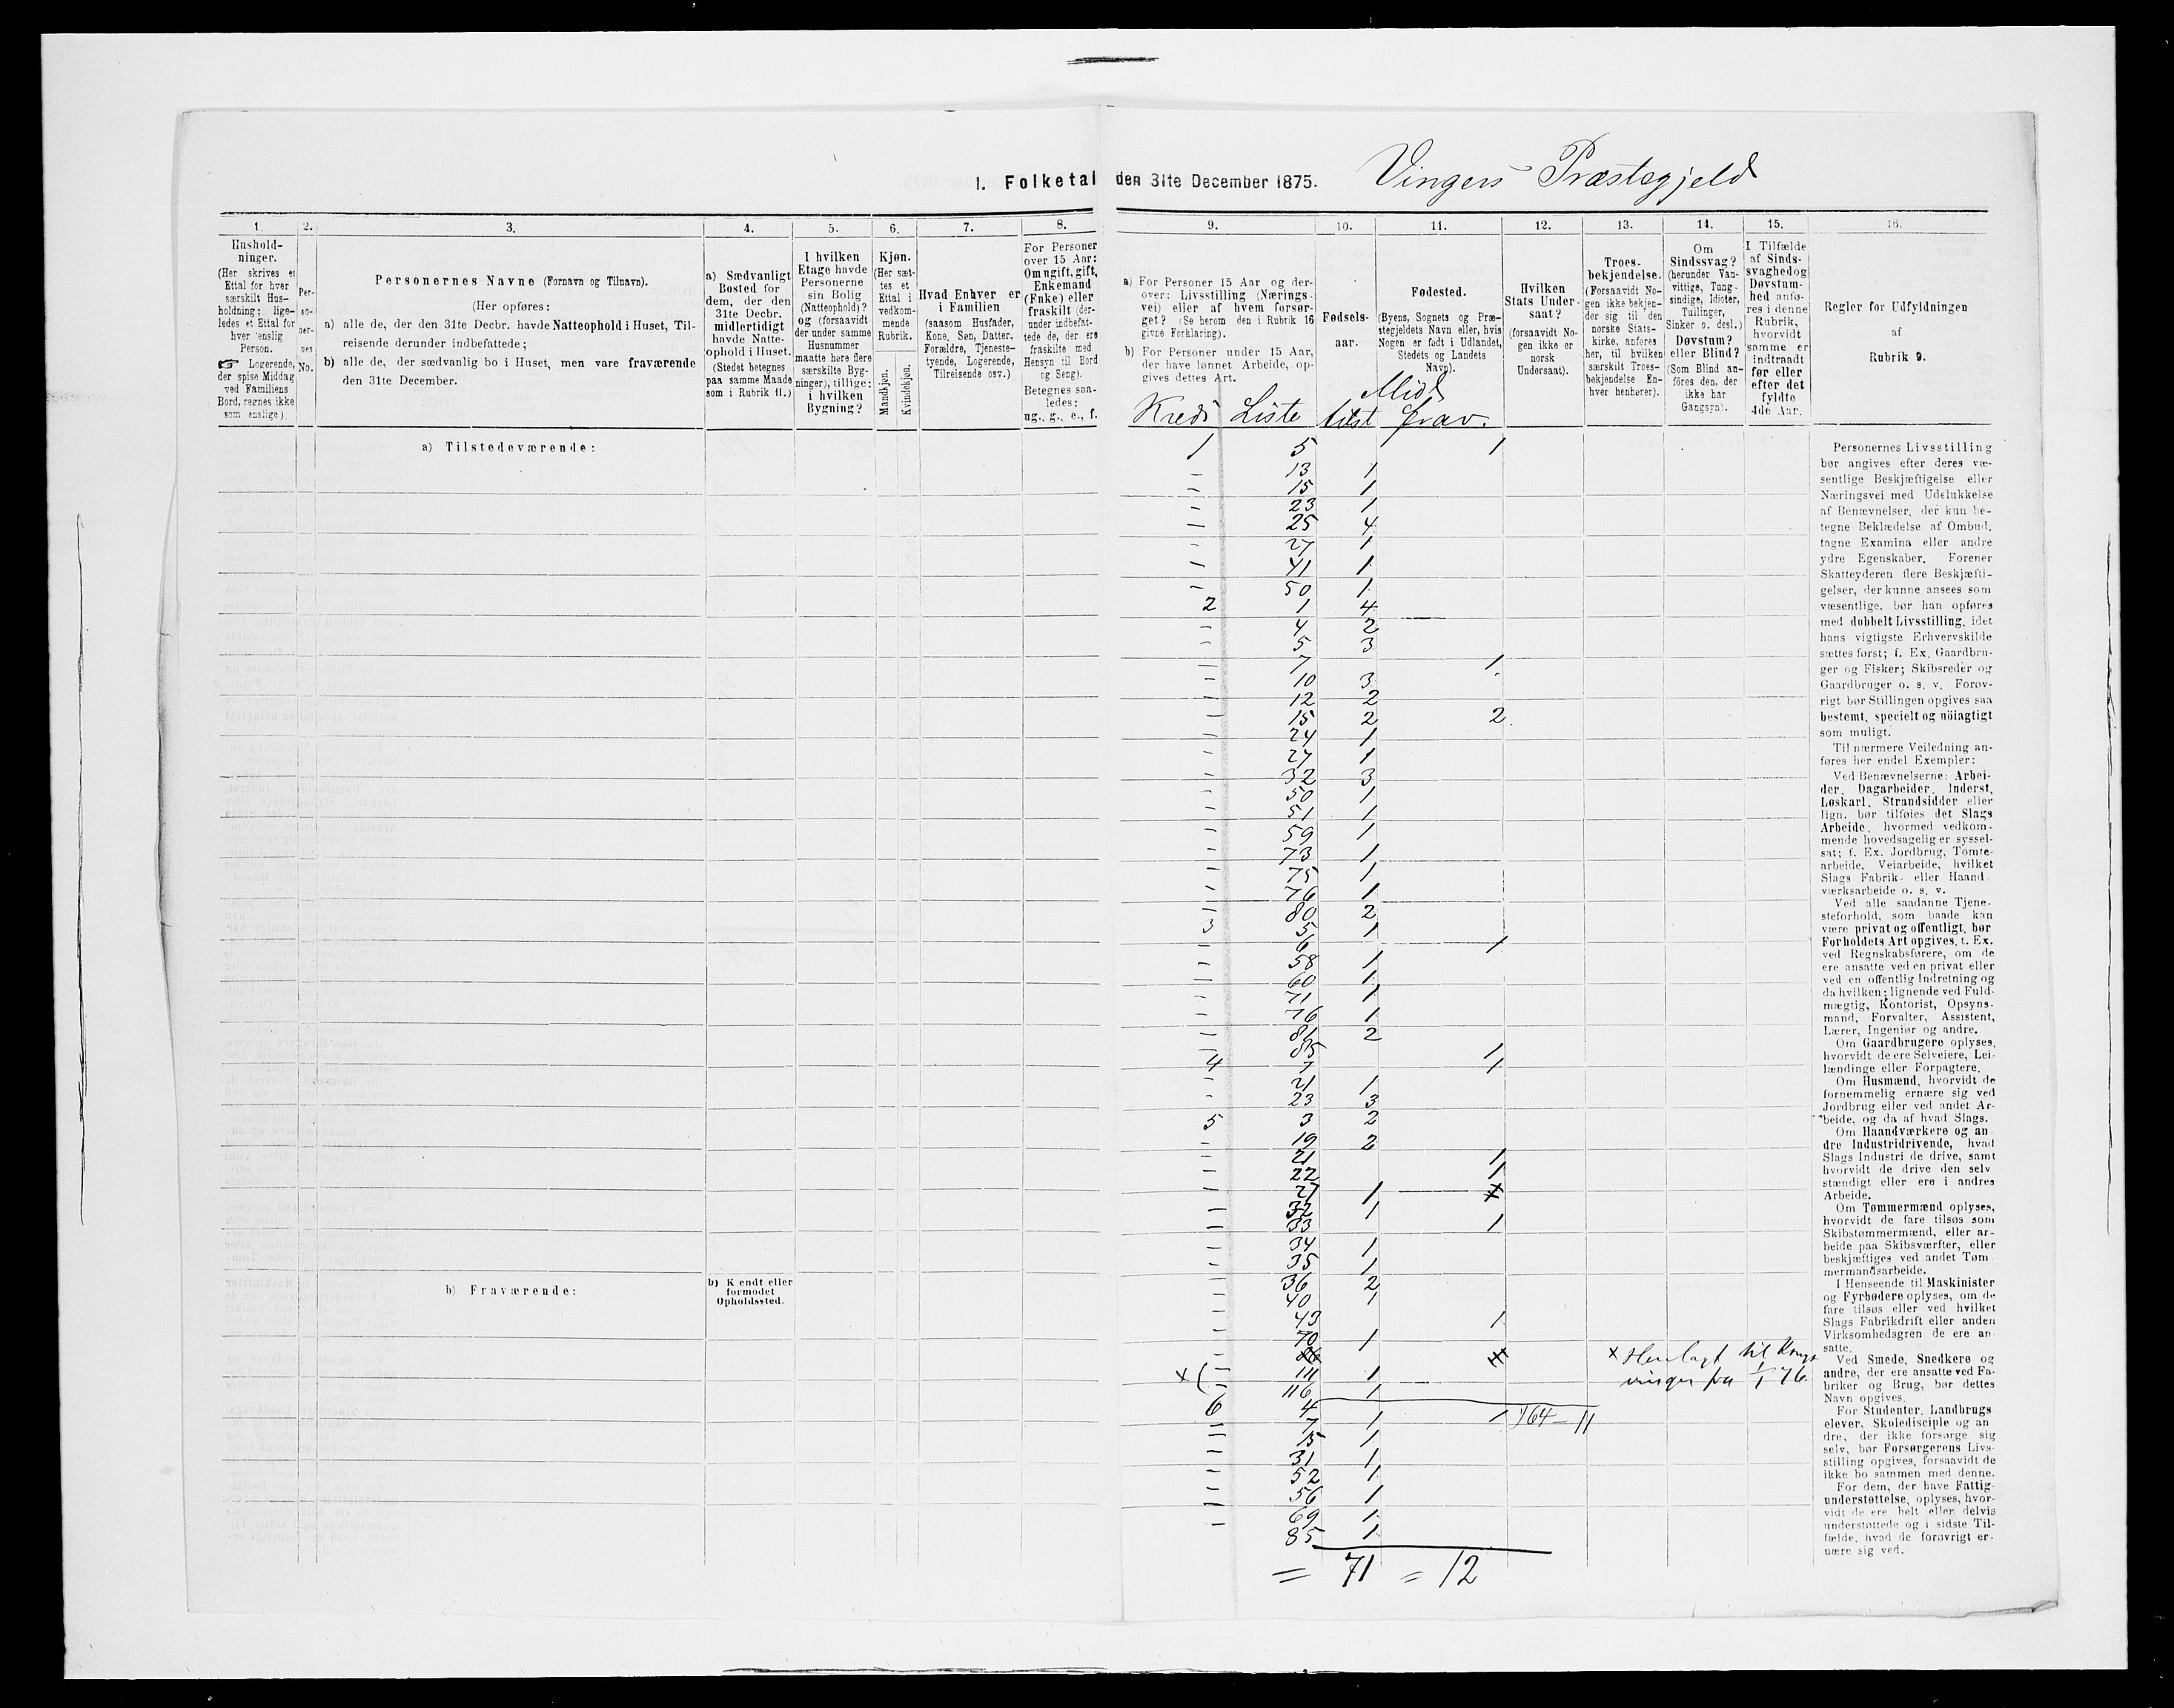 I. Folketal den 31te December 1875. Vingers Præstegjeld
1. 2. 3. 4. 5. 6. 7. 8. 9. 10. 11. 12. 13. 14. 15. 16.
Hushold-
ninger.
(Her skrives et
Ettal for hver
særskilt Hus-
holdning; lige-
ledes et Ettal for
hver enslig
Person.
☞ Logerende,
der spise Middag
ved Familiens
Bord, regnes ikke
som enslige)
Per-
so-
ner-
nes
No.
Personernes Navne (Fornavn og Tilnavn).
(Her opføres:
a) alle de, der den 31te Decbr. havde Natteophold i Huset, Til-
reisende derunder indbefattede;
b) alle de, der sædvanlig bo i Huset, men vare fraværende
den 31te December.
a) Sædvanligt
Bosted for
dem, der den
31te Decbr.
midlertidigt
havde Natte-
ophold i Huset.
(Stedet betegnes
paa samme Maade
som i Rubrik 11.)
I hvilken
Etage havde
Personerne
sin Bolig
(Natteophold)?
og (forsaavidt
der under samme
Husnummer
maatte høre flere
særskilte Byg-
ninger), tillige:
i hvilken
Bygning?
Kjøn.
(Her sæt-
tes et
Ettal i
vedkom-
mende
Rubrik.
Mandkjøn.
Kvindekjøn.
Hvad Enhver er
i Familien
(saasom Husfader,
Kone, Søn, Datter,
Forældre, Tjeneste-
tyende, Logerende,
Tilreisende osv.)
For Personer
over 15 Aar:
Om ugift, gift,
Enkemand
(Enke) eller
fraskilt (der-
under indbefat-
tede de, der ere
fraskilte med
Hensyn til Bord
og Seng).
Betegnes saa-
ledes:
ug., g., e., f.
a) For Personer 15 Aar og der-
over: Livsstilling (Nærings-
vei) eller af hvem forsør-
get? (Se herom den i Rubrik 16
givne Forklaring).
b) For Personer under 15 Aar,
der have lønnet Arbeide, op-
gives dettes Art.
Fødsels-
aar.
Fødested.
(Byens, Sognets og Præ-
stegjeldets Navn eller, hvis
Nogen er født i Udlandet,
Stedets og Landets
Navn).
Hvilken
Stats Under-
saat?
(forsaavidt No-
gen ikke er
norsk
Undersaat).
Troes-
bekjendelse.
(Forsaavidt No-
gen ikke bekjen-
der sig til den
norske Stats-
kirke, anføres
her, til hvilken
særskilt Troes-
bekjendelse En-
hver henhører).
Om
Sindssvag?
(herunder Van-
vittige, Tung-
sindige, Idioter,
Tullinger,
Sinker o. desl.)
Døvstum?
eller Blind?
(Som Blind an-
føres den, der
ikke har
Gangsyn).
I Tilfælde
af Sinds-
svaghed og
Døvstum-
hed anfø-
res i denne
Rubrik,
hvorvidt
samme er
indtraadt
før eller
efter det
fyldte
4de Aar.
Regler for Udfyldningen
af
Rubrik 9.
Midl
Kreds Liste tilst frav.
a) Tilstedeværende:
1 5 1
– 13 1
– 15 1
– 23 1
– 25 4
– 27 1
– 41 1
– 50 1
2 1 4
– 4 2
– 5 3
– 7 1
– 10 3
– 12 2
– 15 2 2
– 24 1
– 27 1
– 32 3
– 50 1
– 51 1
– 59 1
– 73 1
– 75 1
– 76 1
– 80 2
3 5 1
– 6 1
– 58 1
– 60 1
– 71 1
– 76 1
– 81 2
– 85 1
4 7 1
– 21 1
– 23 3
5 3 2
– 19 2
– 21 1
– 22 1
– 27 1
– 32 1
– 33 1
– 34 1
– 35 1
– 36 2
– 40 1
– 43 1
– 70 1
– 111 1
– 116 1
6 4 1 164 = 11
– 7 1
– 15 1
– 31 1
– 52 1
– 56 1
– 69 1
– 85 1
= 71 = 12
x Henlagt til Kongs
vinger fra 1/1 76.
b) Fraværende:
b) Kendt eller
formodet
Opholdssted.
Personernes Livsstilling
bør angives efter deres væ-
sentlige Beskjæftigelse eller
Næringsvei med Udelukkelse
af Benævnelser, der kun be-
tegne Beklædelse af Ombud,
tagne Examina eller andre
ydre Egenskaber. Forener
Skatteyderen flere Beskjæfti-
gelser, der kunne ansees som
væsentlige, bør han opføres
med dobbelt Livsstilling, idet
hans vigtigste Erhvervskilde
sættes først; f. Ex. Gaardbru-
ger og Fisker; Skibsreder og
Gaardbruger o. s. v. Forøv-
rigt bør Stillingen opgives saa
bestemt, specielt og nöiagtigt
som muligt.
Til nærmere Veiledning an-
føres her endel Exempler:
Ved Benævnelserne: Arbei-
der, Dagarbeider, Inderst,
Løskarl, Strandsidder eller
lign. bør tilføies det Slags
Arbeide, hvormed vedkom-
mende hovedsagelig er syssel-
sat; f. Ex. Jordbrug, Tomte-
arbeide, Veiarbeide, hvilket
Slags Fabrik- eller Haand-
værksarbeide o. s. v.
Ved alle saadanne Tjene-
steforhold, som baade kan
være privat og offentligt, bør
Forholdets Art opgives, t. Ex.
ved Regnskabsførere, om de
ere ansatte ved en privat eller
ved en offentlig Indretning og
da hvilken; lignende ved Fuld-
mægtig, Kontorist, Opsyns-
mand, Forvalter, Assistent,
Lærer, Ingeniør og andre.
Om Gaardbrugere oplyses,
hvorvidt de ere Selveiere, Lei-
lændinge eller Forpagtere.
Om Husmænd, hvorvidt de
fornemmelig ernære sig ved
Jordbrug eller ved andet Ar-
beide, og da af hvad Slags.
Om Haandværkere og an-
dre Industridrivende, hvad
Slags Industri de drive, samt
hvorvidt de drive den selv
stændigt eller ere i andres
Arbeide.
Om Tømmermænd oplyses,
hvorvidt de fare tilsøs som
Skibstømmermænd, eller ar-
beide paa Skibsværfter, eller
beskjæftiges ved andet Tøm-
mermandsarbeide.
I Henseende til Maskinister
og Fyrbødere oplyses, om de
fare tilsøs eller ved hvilket
Slags Fabrikdrift eller anden
Virksomhedsgren de ere an-
satte.
Ved Smede, Snedkere og
andre, der ere ansatte ved Fa-
briker og Brug, bør dettes
Navn opgives.
For Studenter, Landbrugs-
elever, Skoledisciple og an-
dre, der ikke forsørge sig
selv, bør Forsørgerens Livs-
stilling opgives, forsaavidt de
ikke bo sammen med denne.
For dem, der have Fattig-
understøttelse, oplyses, hvor-
vidt de ere helt eller delvis
understøttede og i sidste Til-
fælde, hvad de forøvrigt er-
nære sig ved.